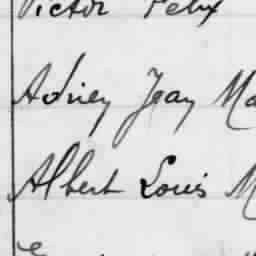 Victor Felix
Adrien Jean Ma
Albert Louis M